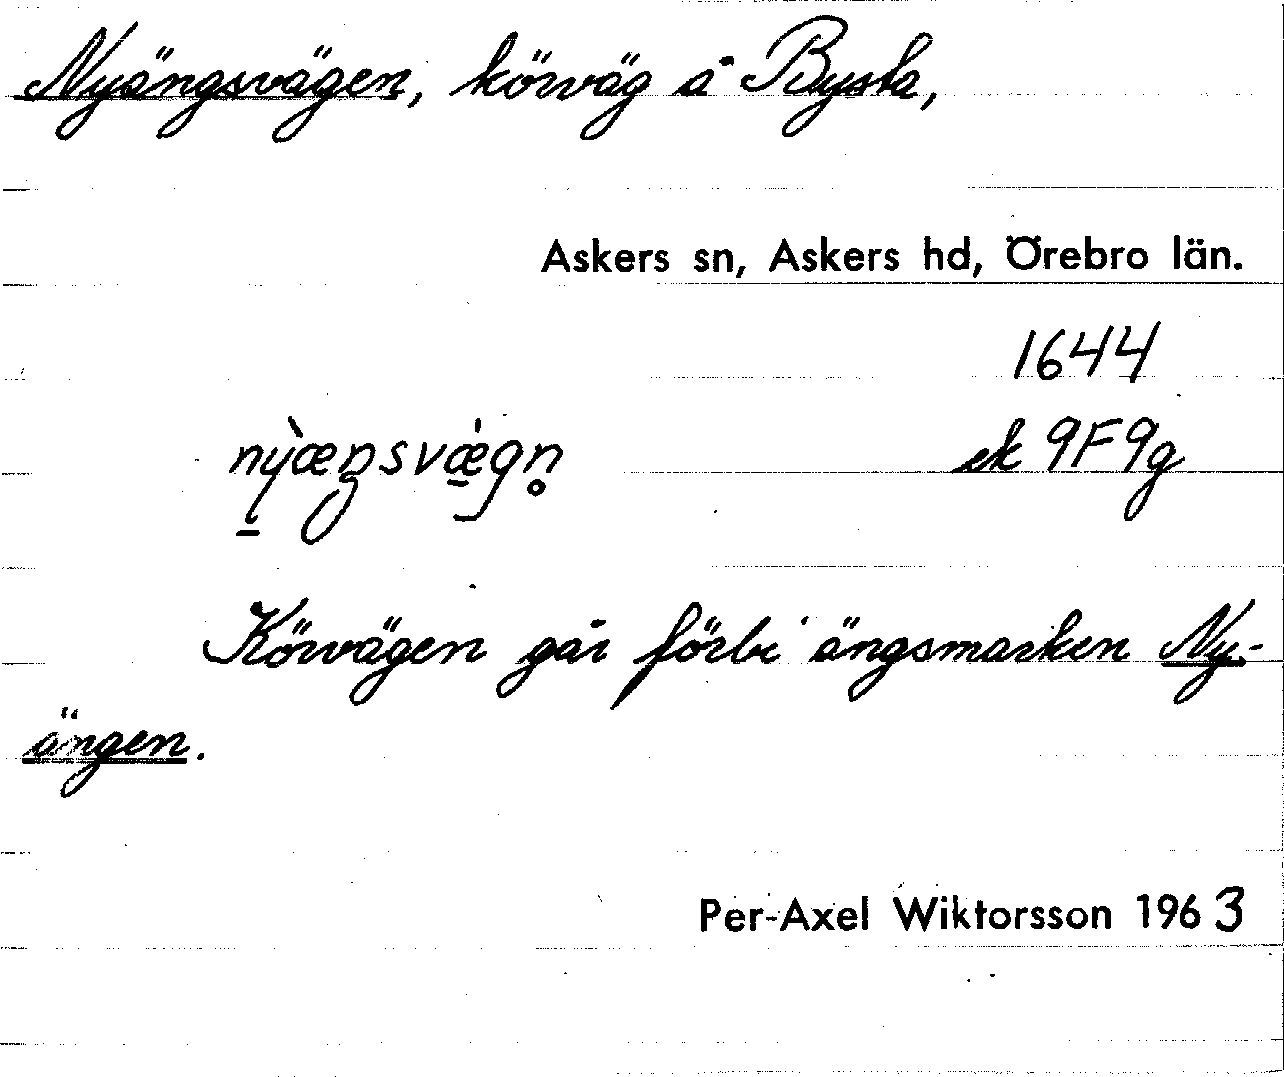 Nyängsvägen, körväg å Bysta,
Askers sn, Askers hd, Örebro län.
1644
ek 9F9g
nỳæŋsvæ̀gn̥
Körvägen går förbi ängsmarken Ny-
ängen.
Per-Axel Wiktorsson 1963